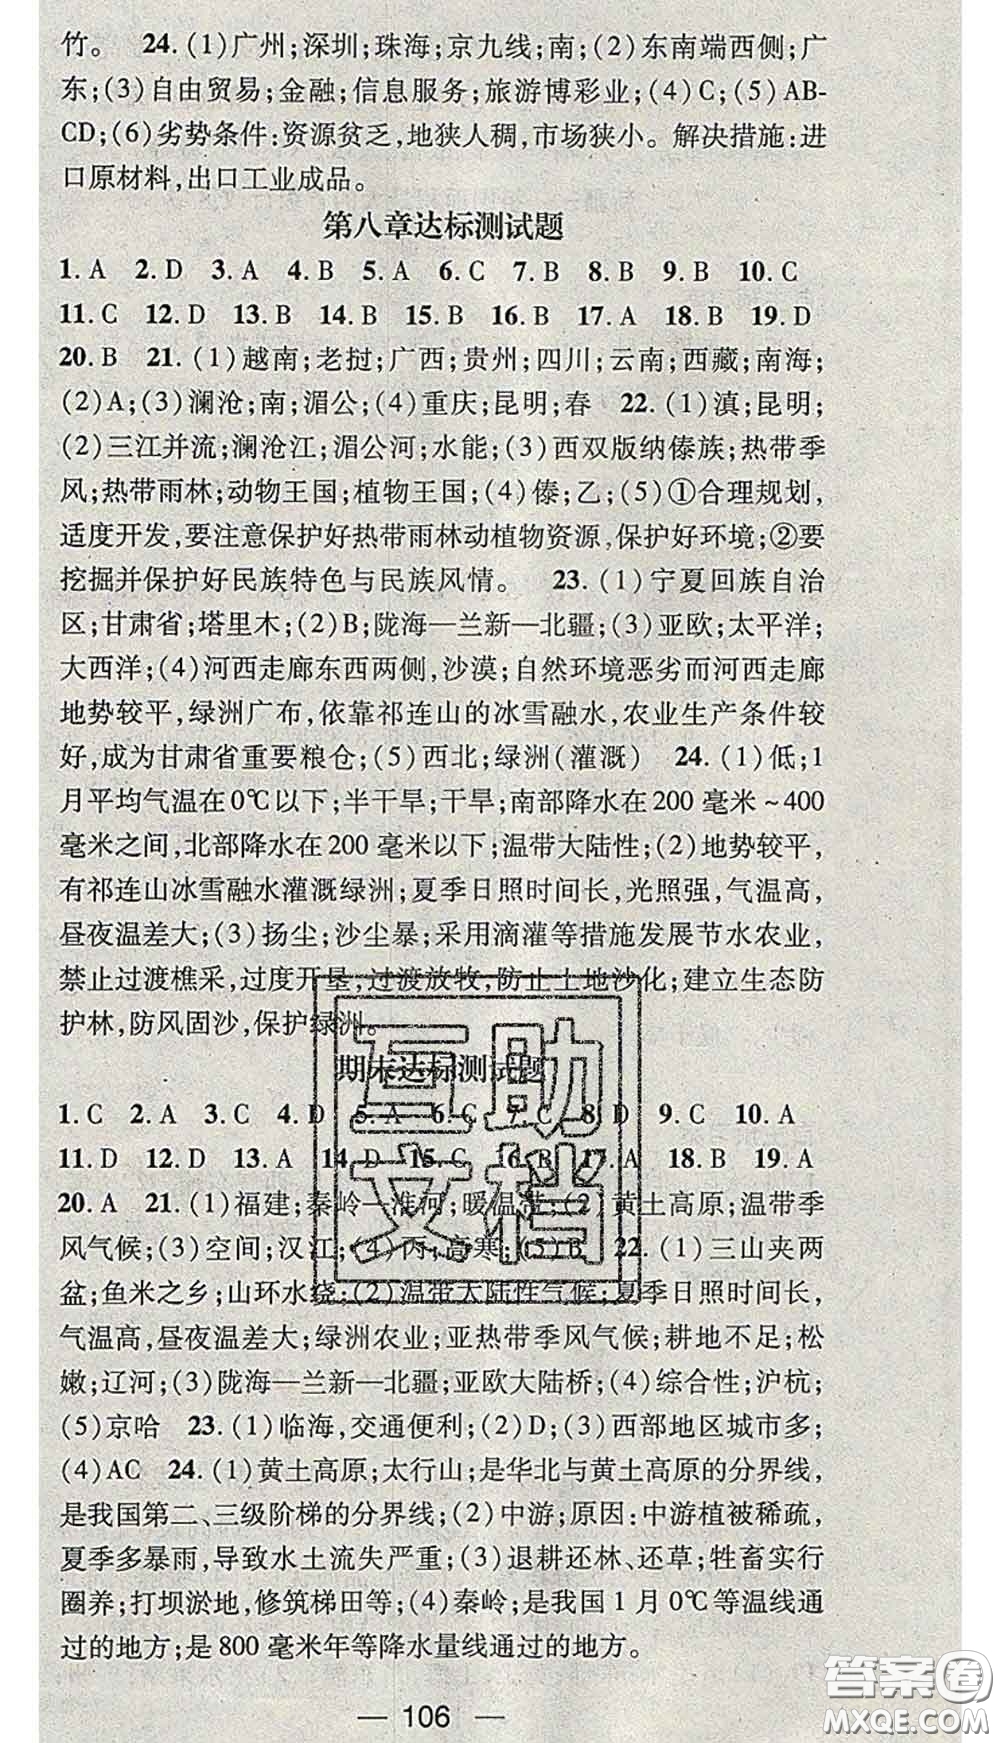 竹。 24. (1)广州;深圳;珠海;京九线;南;(2)东南端西侧;广
东;(3)自由贸易;金融;信息服务;旅游博彩业;(4)C;(5)AB-
CD;(6)劣势条件:资源贫乏,地狭人稠,市场狭小。解决措施:进
口原材料,出口工业成品。
第八章达标测试题
1. A 2. D 3. A 4. B 5. A 6. C 7. B 8. B 9. B 10. C
11. C 12. D 13. B 14. B 15. B 16. B 17. A 18. B 19. D
20. B 21. (1)越南;老挝;广西;贵州;四川;云南;西藏;南海;
(2)A;(3)澜沧;南;湄公;(4)重庆;昆明;春 22. (1)滇;昆明;
(2)三江并流;澜沧江;湄公河;水能;(3)西双版纳傣族;热带季
风;热带雨林;动物王国;植物王国;(4)傣;乙;(5)①合理规划,
适度开发,要注意保护好热带雨林动植物资源,保护好环境;②要
挖掘并保护好民族特色与民族风情。 23. (1)宁夏回族自治
区;甘肃省;塔里木;(2)B;陇海—兰新—北疆;(3)亚欧;太平洋;
大西洋;(4)河西走廊东西两侧,沙漠;自然环境恶劣而河西走廊
地势较平,绿洲广布,依靠祁连山的冰雪融水,农业生产条件较
好,成为甘肃省重要粮仓;(5)西北;绿洲(灌溉) 24. (1)低;1
月平均气温在0℃以下;半干旱;干旱;南部降水在200毫米~400
毫米之间,北部降水在200毫米以下;温带大陆性;(2)地势较平,
有祁连山冰雪融水灌溉绿洲;夏季日照时间长,光照强,气温高,
昼夜温差大;(3)扬尘;沙尘暴;采用滴灌等措施发展节水农业,
禁止过渡樵采,过度开垦,过渡放牧,防止土地沙化;建立生态防
护林,防风固沙,保护绿洲。
期末达标测试题
1. C 2. A 3. C 4. D 5. A 6. C 7. C 8. D 9. C 10. A
11. D 12. D 13. A 14. D 15. C 16. B 17. A 18. B 19. A
20. A 21. (1)福建;秦岭—淮河;暖温带;(2)黄土高原;温带季
风气候;(3)空间;汉江;(4)丙;高寒;(5)B 22. (1)三山夹两
盆;鱼米之乡;山环水绕;(2)温带大陆性气候;夏季日照时间长,
气温高,昼夜温差大;绿洲农业;亚热带季风气候;耕地不足;松
嫩;辽河;(3)陇海—兰新—北疆;亚欧大陆桥;(4)综合性;沪杭;
(5)京哈 23. (1)临海,交通便利;(2)D;(3)西部地区城市多;
(4)AC 24. (1)黄土高原;太行山;是华北与黄土高原的分界线,
是我国第二、三级阶梯的分界线;(2)中游;原因:中游植被稀疏,
夏季多暴雨,导致水土流失严重;(3)退耕还林、还草;牲畜实行
圈养;打坝淤地,修筑梯田等;(4)秦岭;是我国1月0℃等温线通
过的地方;是800毫米年等降水量线通过的地方。
— 106 —
互助
文档
答案圈
MXQE.COM